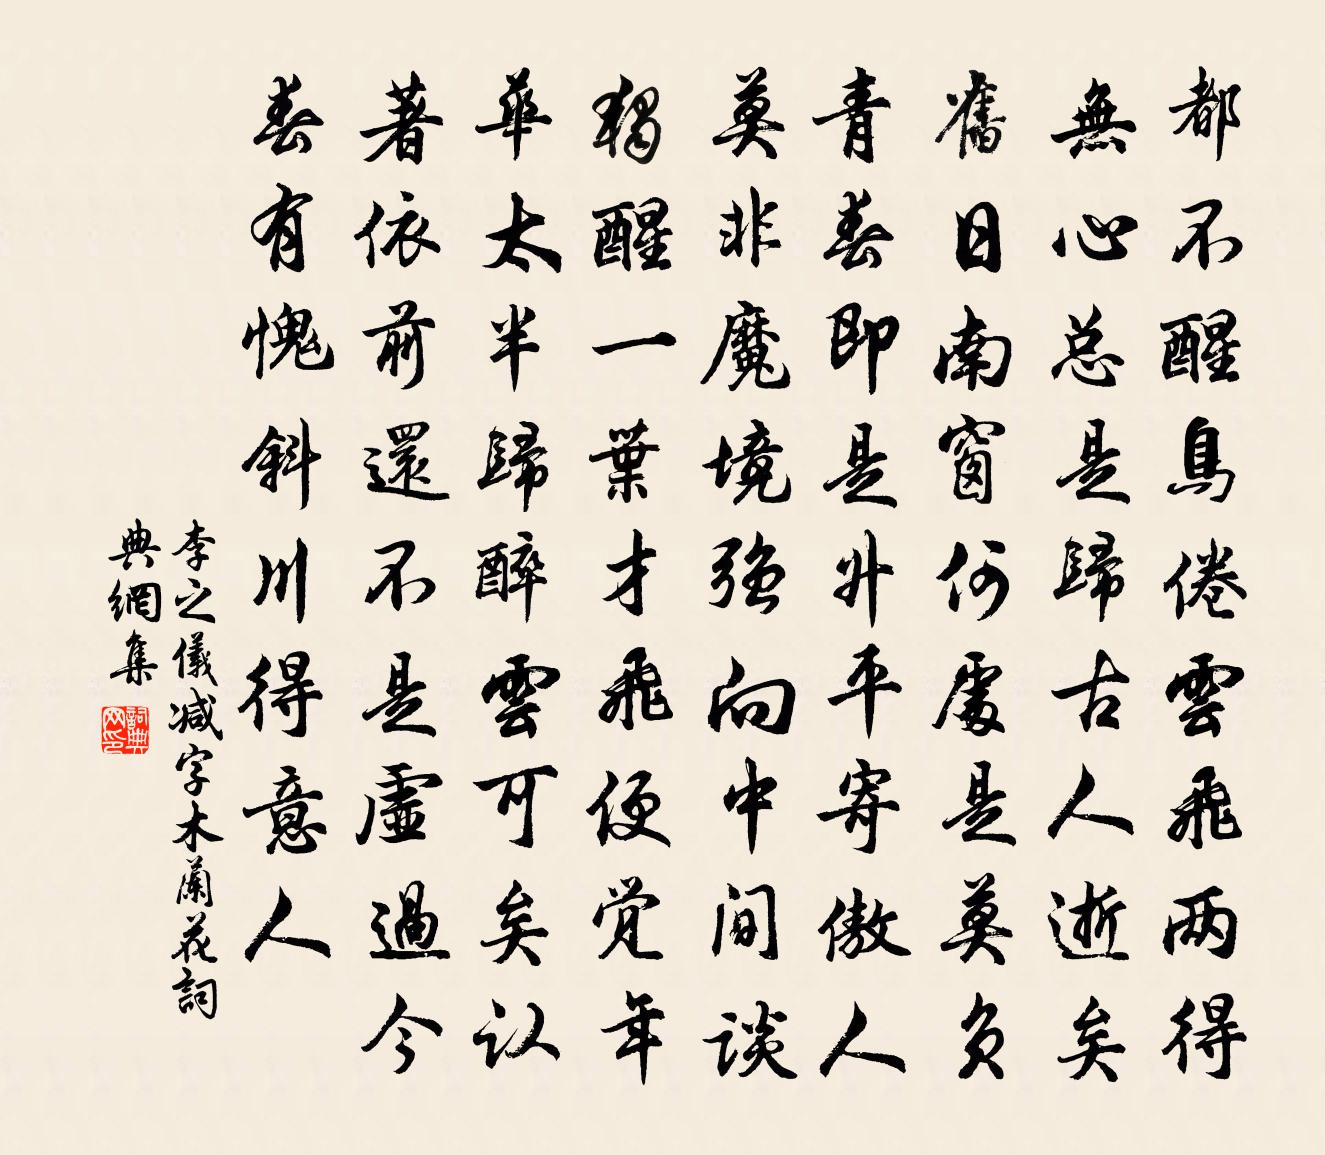 都不醒鳥倦雲飛两得
無心总是歸古人逝矣
舊日南窗何處是莫負
青春即是升平寄傲人
莫非魔境強向中间谈
獨醒一葉才飛便觉年
華太半歸醉雲可矣认
著依前還不是虛過今
春有愧斜川得意人
李之儀减字木蘭花詞
典網集
詞典网印